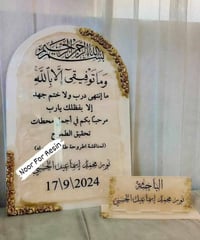 بسم الله الرحمن الرحيم
وَمَا تَوْفِيقِي إِلَّا بِاللَّهِ
ما إنتهى درب ولا ختم جهد
إلا بفضلك يارب
مرحباً بكم في أجمل محطات
تحقيق الطموح
(لمناقشة اطروحة
نور محمد إسماعيل الحسيني
17\9\2024
Noor For Resin
الباحثة
نور محمد إسماعيل الحسيني